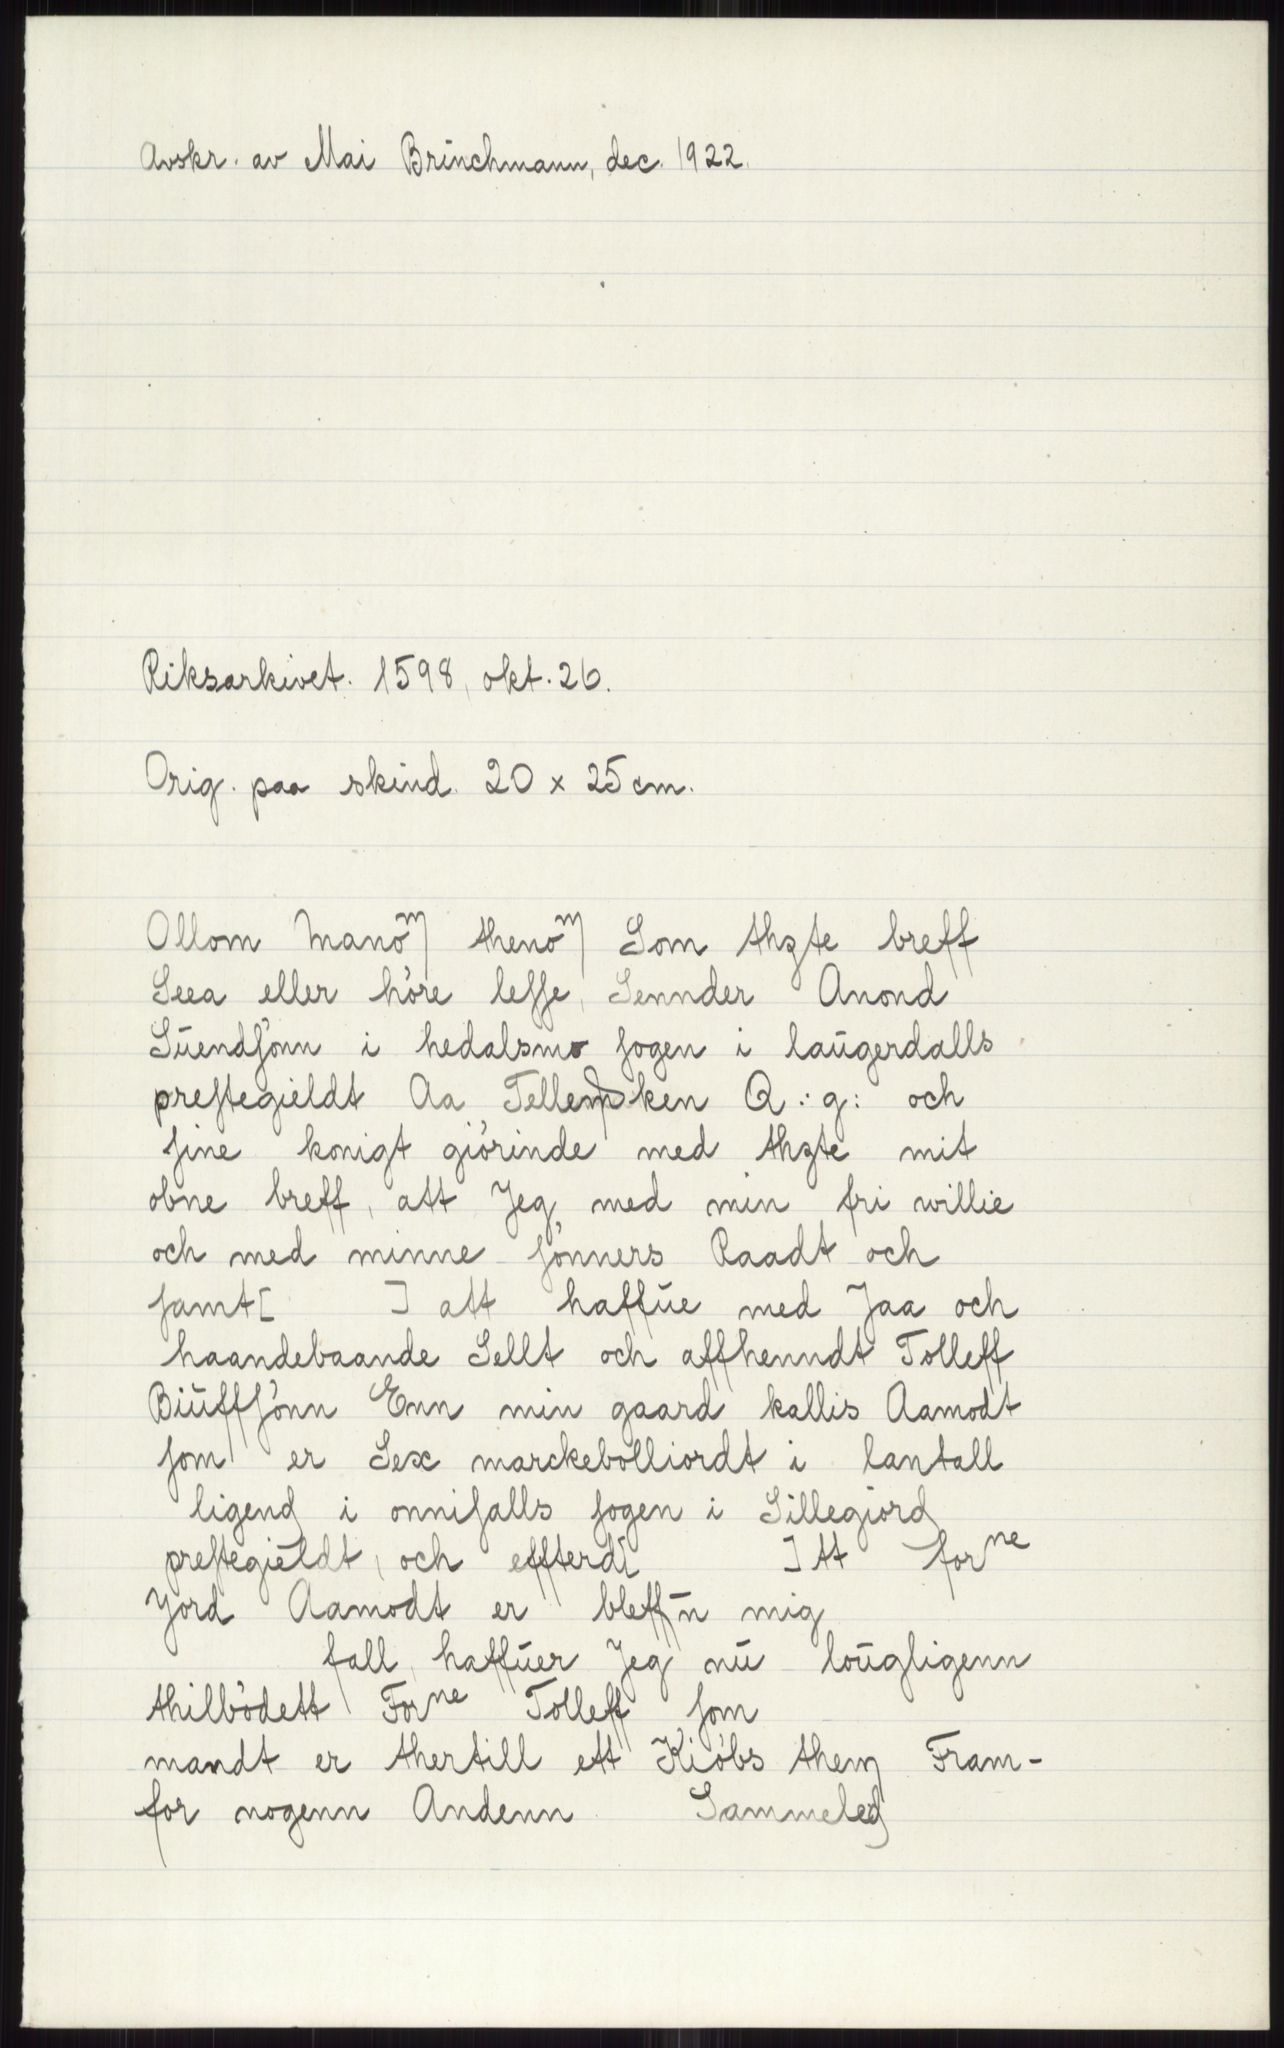 Avskr. av Mai Brinchmann, dec. 1922.
Riksarkivet. 1598, okt. 26.
Orig. paa skind. 20 x 25 cm.
Ollom manom thenom Som thzte breff
Seea eller höre lesse, Sennder Anond
Süendsönn i hedalsmo sogen i laügerdalls
prestegieldt Aa Tellemsken Q.:g: och
sine konigt giörinde med thzte mit
obne breff, att Jeg med min fri willie
och med minne sönners Raadt och
samt[ ] att haffüe med Jaa och
haandebaande Sellt och affhenndt Tolleff
Biüffsönn Enn min gaard kallis Aamodt
som er Sex marckebolliordt i lantall
ligend i onnisalls sogen i Sillegiord
prestegieldt, och effterd[ ]tt forne
Jord Aamodt er bleffn mig
fall, haffüer Jeg nü loügligenn
thilbödett Forne Tolleff som
mandt er thertill ett Kiöbs them Fram-
for nogenn Andenn Sammeled